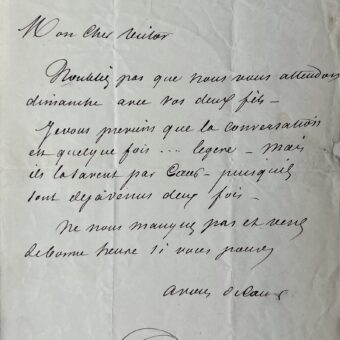 Mon cher Victor
N'oubliez pas que nous vous attendons
dimanche avec vos deux fils –
Je vous préviens que la conversation
est quelque fois ... légère – mais
ils la savent par Cœur – puisqu'ils
sont déjà venus deux fois –
Ne nous manquez pas et venez
de bonne heure si vous pouvez
à vous de Cœur